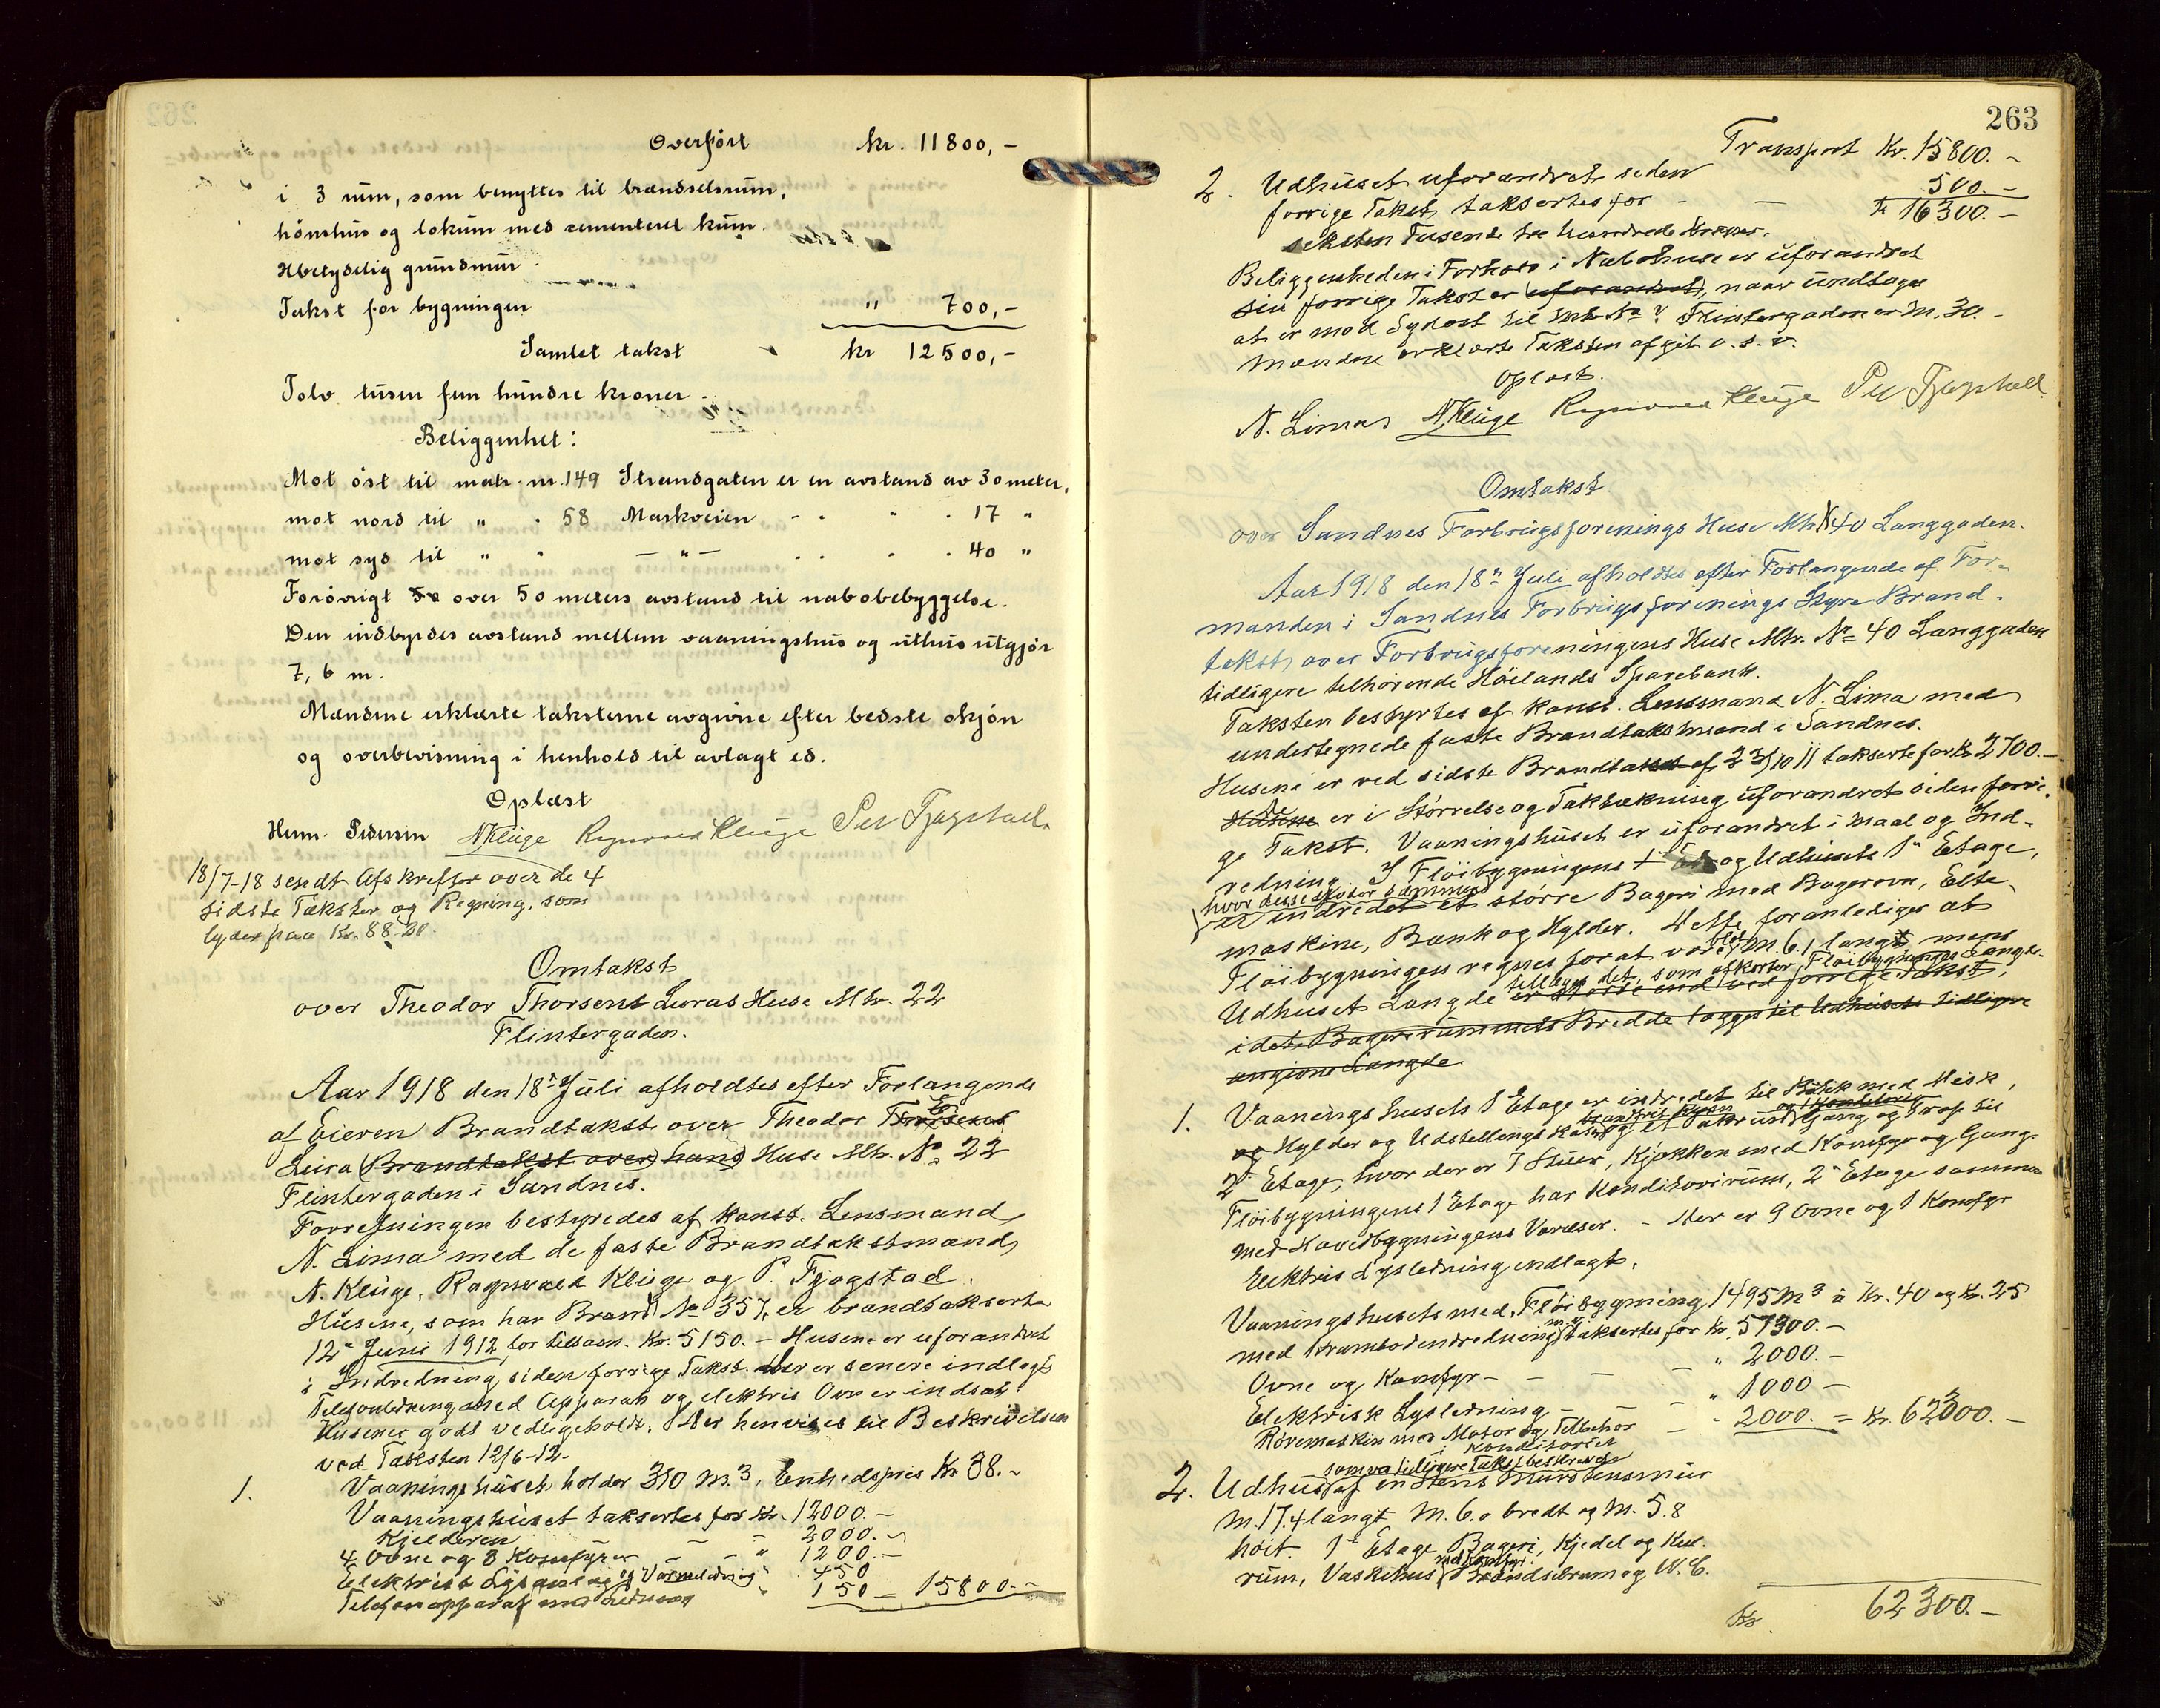 Overført kr. 11800,-
i 3 rum, som benyttes til brændselsrum,
hönshus og lokum med cementeret kum.
Ubetydelig grundmur
Takst for bygningen " 700,-
Samlet takst kr 12500,-
Tolv tusen fem hundre kroner.
Beliggenhet:
Mot öst til matr. nr. 149 Strandgaten er en avstand av 30 meter,
mot nord til " . 58 Markveien - . " . 17 "
mot syd til " " — " — . . " . 40 "
Forövrigt over 50 meters avstand til nabobebyggelse.
Den indbyrdes avstand mellem vaaningshus og uthus utgjör
7,6 m.
Mændene erklærte taksterne avgivne efter bedste skjön
og overbevisning i henhold til avlagt ed.
Oplæst
Herm. Pedersen N Kluge Ragnvald Kluge Per Fjogstad.
18/7-18 sendt Afskrifter over de 4
sidste Takster og Regning, som
lyder paa Kr. 88.20
Omtakst
over Theodor Thorsens Luras Huse Mtr. 22
Flintergaden.
Aar 1918 den 18n Juli afholdtes efter Forlangende
af Eieren Brandtakst over Theodor Thorsens
Lura (Brandtakst over hans) Huse Mtr. No 22
Flintergaden i Sandnes.
Forretningen bestyredes af Konst. Lensmand
N. Lima med de faste Brandtakstmænd
N. Kluge, Ragnvald Kluge og P. Fjogstad.
Husene, som har Brand No 357, er brandtakserte
12n Juni 1912 for tilsam. Kr. 5150.- Husene er uforandret
i Indredning siden forrige Takst. Her er senere indlagt
Telefonledning med Apparat og elektris Ovn er indsat.
Husene godt vedligeholdt. Der henvises til Beskrivelsen
ved Taksten 12/6-12.
1. Vaaningshuset holder 310 M.3, Enhedspris Kr 38.-
Vaaningshuset taksertes for Kr. 12000.-
Kjelderen - - " 2000.-
4 Ovne og 3 Komfyrer - - " 1200.-
Elektrisk Lysanlæg og Varmeledning " 450
Telefonapparat med Ledning " 150 — 15800.-
263
Transport Kr. 15800.-
2. Udhuset uforandret siden
forrige Takst, taksertes for - — 500.-
Kr 16300.-
seksten Tusende tre hundrede Kroner.
Beliggenheden i Forhold i Nabohuse er uforandret
sin forrige Takst er (uforandret), naar undtages
at er mod Sydost til Mtr No ? Flintergaden er M. 30.-
Mændene erklærte Taksten afgit o. s. v.
Oplæst.
N. Lima N Kluge Ragnvald Kluge Per Fjogstad
Omtakst
over Sandnes Forbrugsforenings Huse Mtr N 40 Langgaden.
Aar 1918 den 18n Juli afholdtes efter Forlangende af For-
manden i Sandnes Forbrugsforenings Styre Brand-
takst over Forbrugsforeningens Huse Mtr. No 40 Langgaden
tidligere tilhørende Høilands Sparebank.
Taksten bestyrtes af Konst. Lensmand N. Lima med
undertegnede faste Brandtakstmænd i Sandnes.
Husene er ved sidste Brandtakst af 23/10 11 takserte for Kr 2700.-
Husene De er i Størrelse og Taktækning uforandret siden forri-
ge Takst. Vaaningshuset er uforandret i Maal og Ind-
redning. I Fløibygningens 1 og Udhusets 1n Etage,
hvor disse støder sammen
er indredet et større Bageri med Bagerovn, Elte-
maskine, Bænk og Hylder. Dette foranlediger at
Fløibygningen regnes for at være blot M. 6,1 langt, mens
Udhuset Længde tillægges det, som afkorter Fløibygningens Længde.
er større end ved forrige Takst,
idet Bagerirummets Bredde lægges til Udhusets tidligere
angivne Længde
1. Vaaningshusets 1 Etage er indredet til Butik med Disk,
og Hylder og Udstillingskasse, et Pakrum og 1 Konditori, Gang og Trap til
2n Etage, hvor der er 7 Stuer, Kjøkken med Komfyr og Gang.
Fløibygningens 1 Etage har Konditorirum, 2n Etage sammen
med Hovedbygningens Værelser. - Der er 9 Ovne og 1 Komfyr
Elektris Lysledning indlagt.
Vaaningshusets med Fløibygning 1495 M3 à Kr. 40 og Kr. 25
med Krambodindredning m. v. taksertes for Kr. 57300.-
Ovne og Komfyr - - - - " 2000.-
Elektrisk Lysledning - - - " 1000-
Røremaskin med Motor og Tilbehør - 2000.- = Kr. 62300.-
i Konditoriet
2. Udhus, som ved tidligere Takst beskrevet, af en Stens Murstensmur
M. 17.4 langt M. 6.0 bredt og M. 5.8
høit. 1n Etage Bageri, Kjedel og Kul-
rum, Vaskehus med Komfyr, Brændselsrum og W. C.
Kr. 62300.-